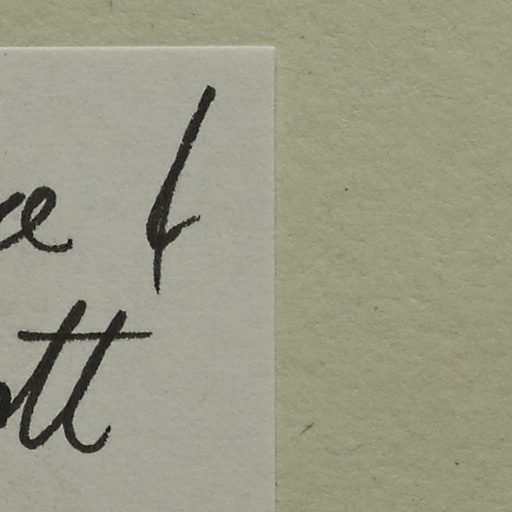 ce &
ott